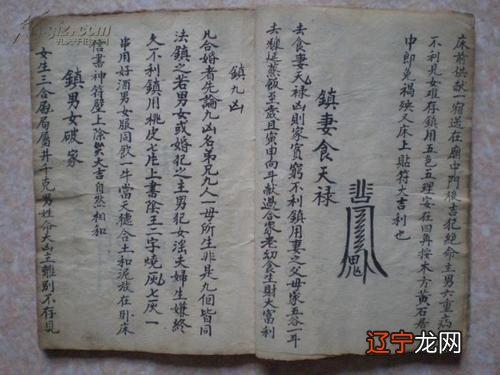 床前供猷一宿送在廟中門後吉犯絕命主男女重病
不利見女难存鎮用五色五理安在四角按木方黃石
中即免禍殃又床上貼符大吉利也
鎮妻食天禄
去食妻天禄凶則家貧窮不利鎮用妻之父母家五谷一斗
去糠延蒸飯至歲旦寅申向斗献過合家老幼食生財大富利
鎮九凶
凡合婚者先論九凶名弟兄九人一母所生非是九個皆同
法鎮之若男女或婚犯之主男犯女淫夫婦生嫌終
久不利鎮用桃皮七庄上書陰王二字燒灰七灰一
串用好酒男女服同飲一牛當大穗合土和泥放在則床
信書神符壁上除禁大吉自然相和
鎮男女破家
女生三合局局屬井千克男姓命大凶主離別不存見
辽宁龙网